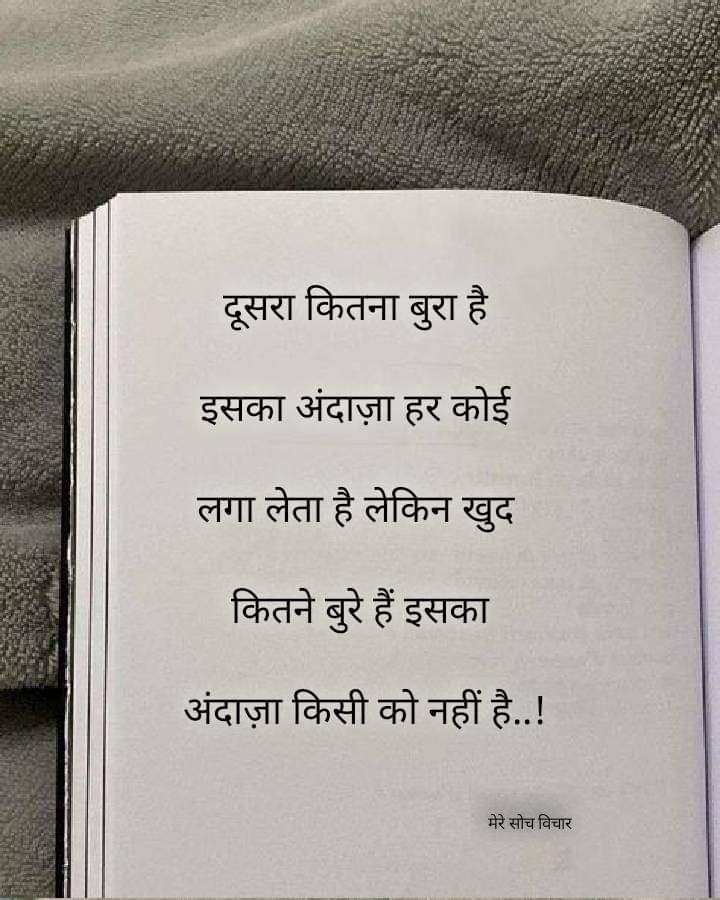 दूसरा कितना बुरा है
इसका अंदाज़ा हर कोई
लगा लेता है लेकिन खुद
कितने बुरे हैं इसका
अंदाज़ा किसी को नहीं है..!
मेरे सोच विचार